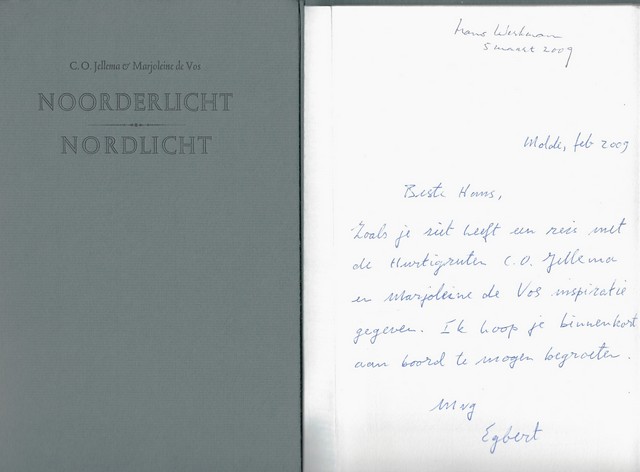 C. O. Jellema & Marjoleine de Vos
NOORDERLICHT
NORDLICHT
Hans Werkman
5 maart 2009
Molde, feb 2009
Beste Hans,
Zoals je ziet heeft een reis met
de Hurtigruten C.O. Jellema
en Marjoleine de Vos inspiratie
gegeven. Ik hoop je binnenkort
aan boord te mogen begroeten.
Mvg
Egbert